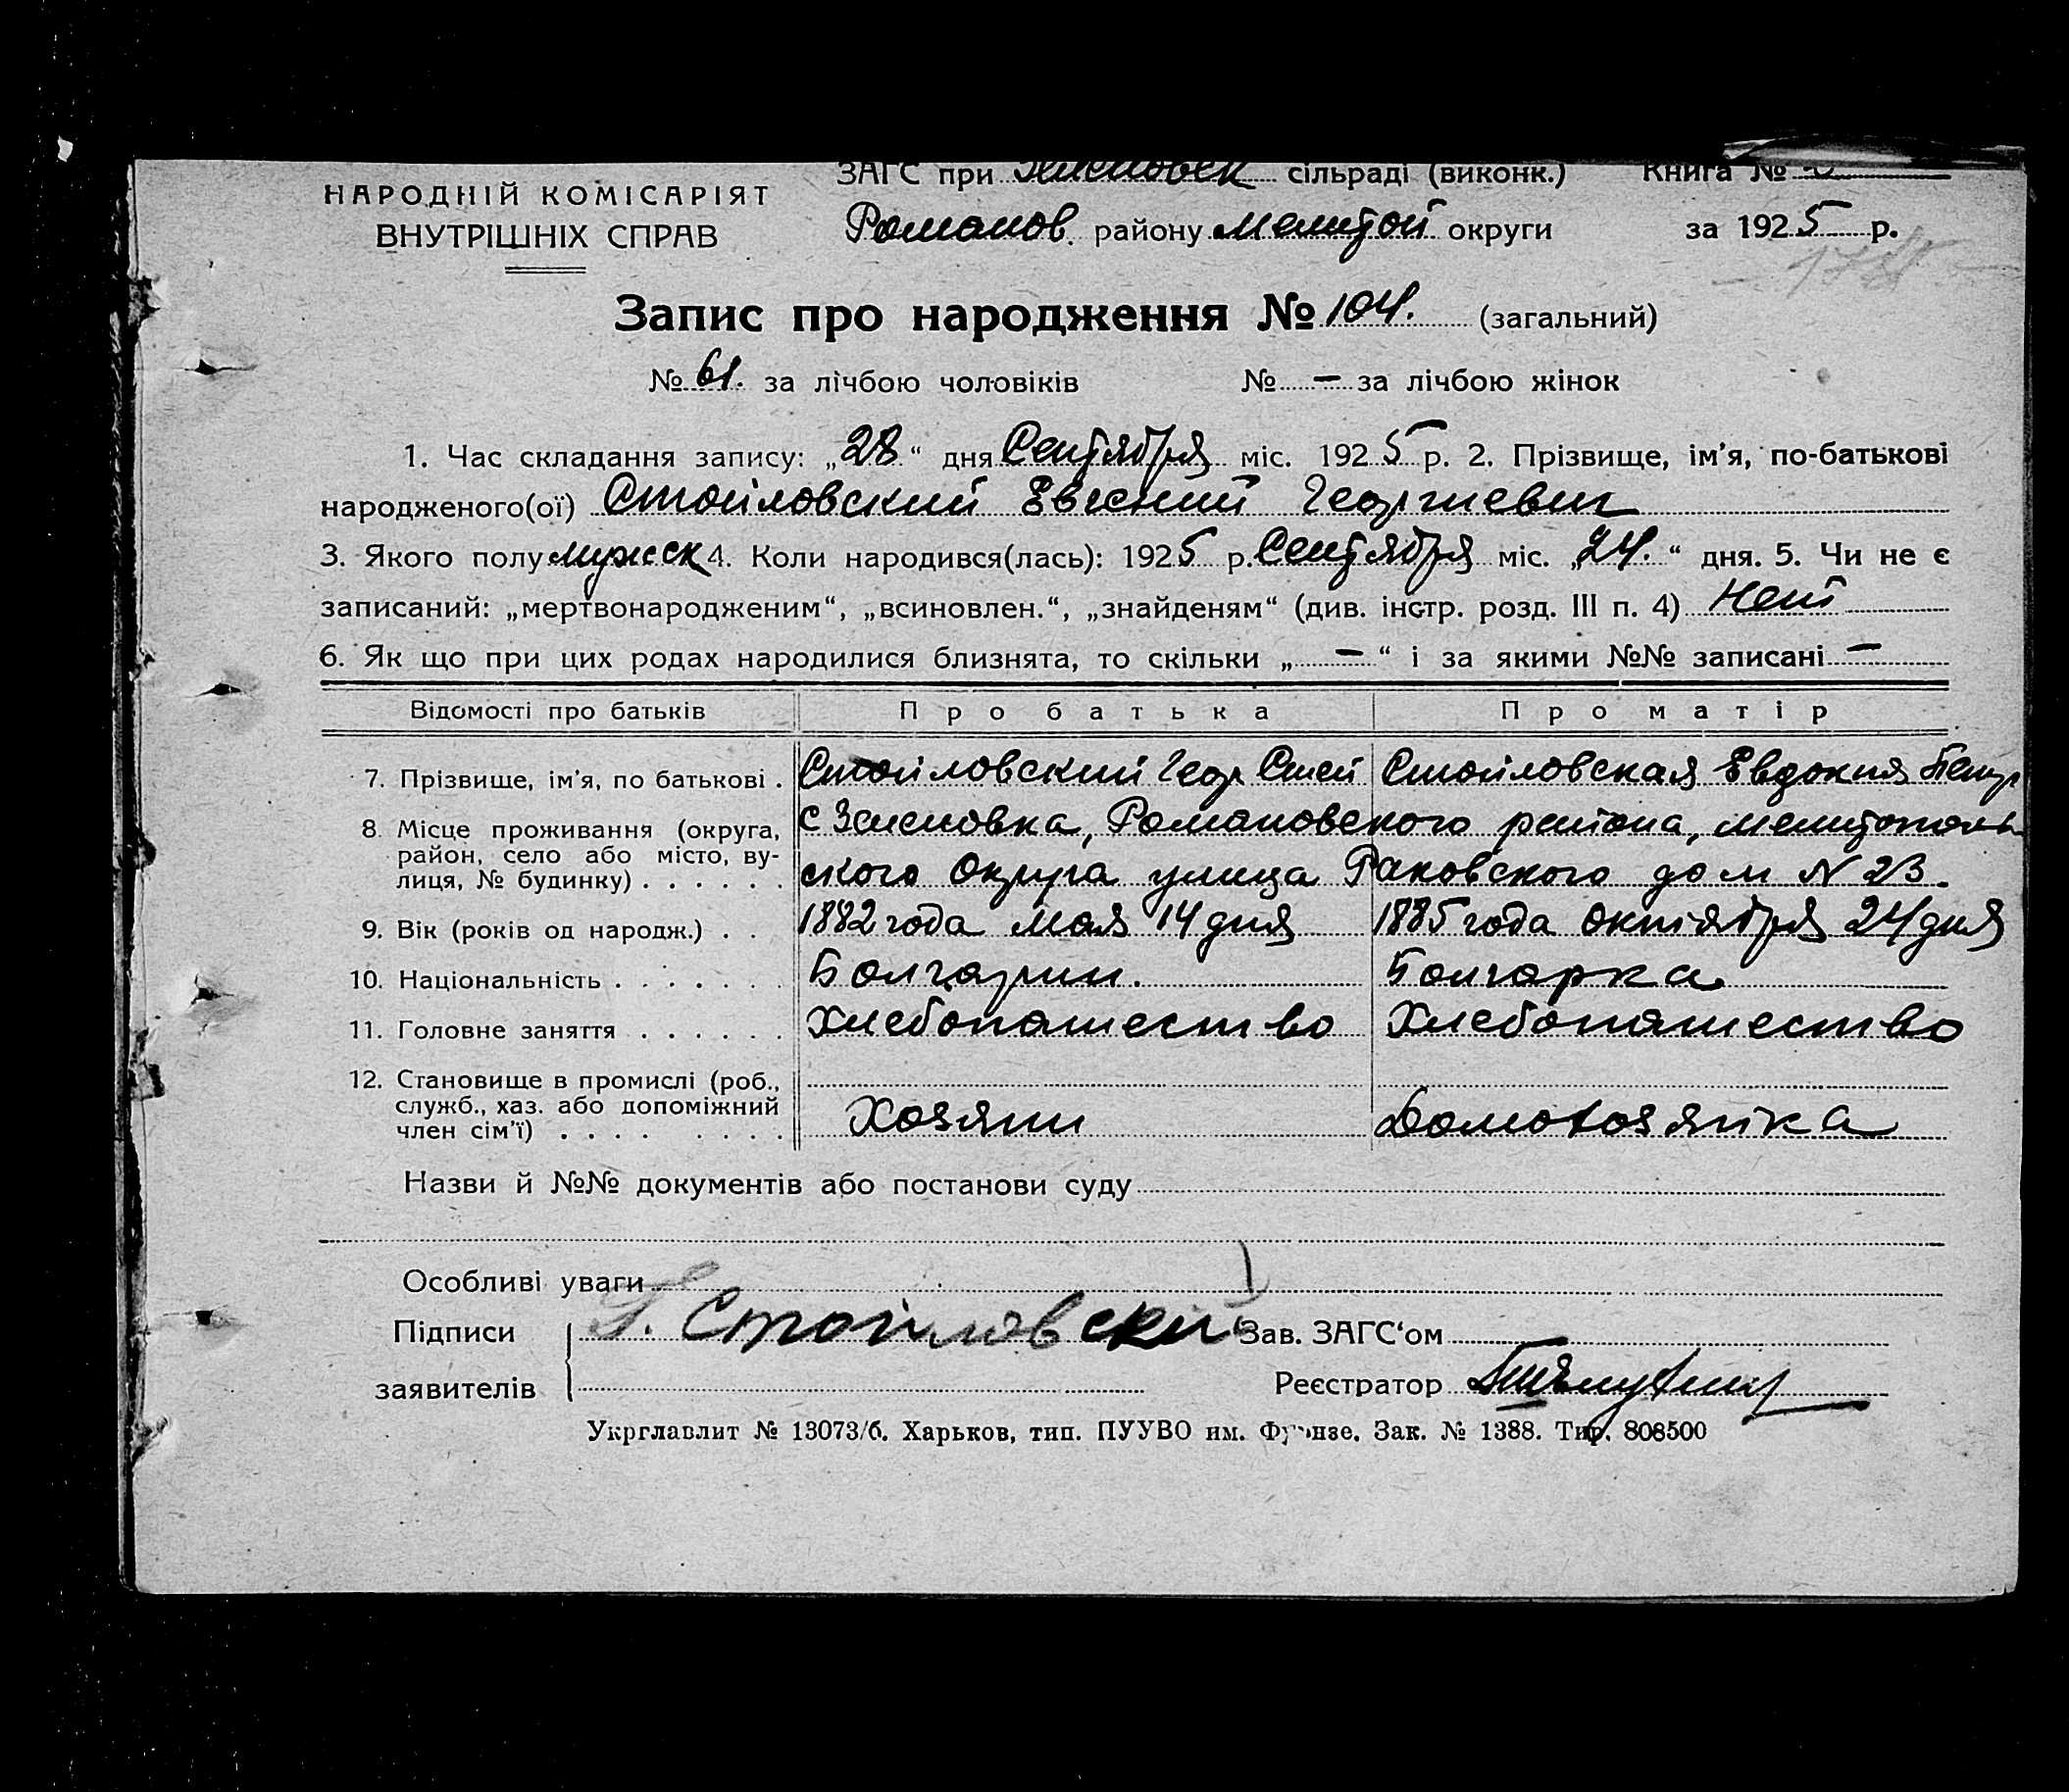 НАРОДНІЙ КОМІСАРІЯТ
ВНУТРІШНІХ СПРАВ
ЗАГС при сільраді (виконк.) Книга №
Романов. району Мелитой округи за 1925 р.
Запис про народження № 104. (загальний)
№ 61. за лічбою чоловіків № — за лічбою жінок
1. Час складання запису: „28“ дня Сентября міс. 1925 р. 2. Прізвище, ім'я, по-батькові
народженого(ої) Стойловский Евгений Георгиевич
3. Якого полу мужск 4. Коли народився(лась): 1925 р. Сентября міс. „24.“ дня. 5. Чи не є
записаний: „мертвонародженим“, „всиновлен.“, „знайденям“ (див. інстр. розд. III п. 4) Нет
6. Як що при цих родах народилися близнята, то скільки „—“ і за якими №№ записані —
Відомості про батьків Про батька Про матір
7. Прізвище, ім'я, по батькові . Стойловский Геор Стей Стойловская Евдокия Петр
8. Місце проживання (округа, район, село або місто, ву-лиця, № будинку) . . . . . . с Зеленовка, Романовского района, Мелитополь
ского Округа улица Раковского дом N 23.
9. Вік (років од народж.) . . 1882 года мая 14 дня 1885 года октября 24 дня
10. Національність . . . . . . . Болгарин. Болгарка
11. Головне заняття . . . . . . Хлебопашество Хлебопашество
12. Становище в промислі (роб., служб., хаз. або допоміжний член сім'ї) . . . . . . . . Хозяин Домохозяйка
Назви й №№ документів або постанови суду
Особливі уваги
Підписи Стойловский Зав. ЗАГС‘ом
заявителів Реєстратор
Укрглавлит № 13073/б. Харьков, тип. ПУУВО им. Фрунзе. Зак. № 1388. Тир. 808500